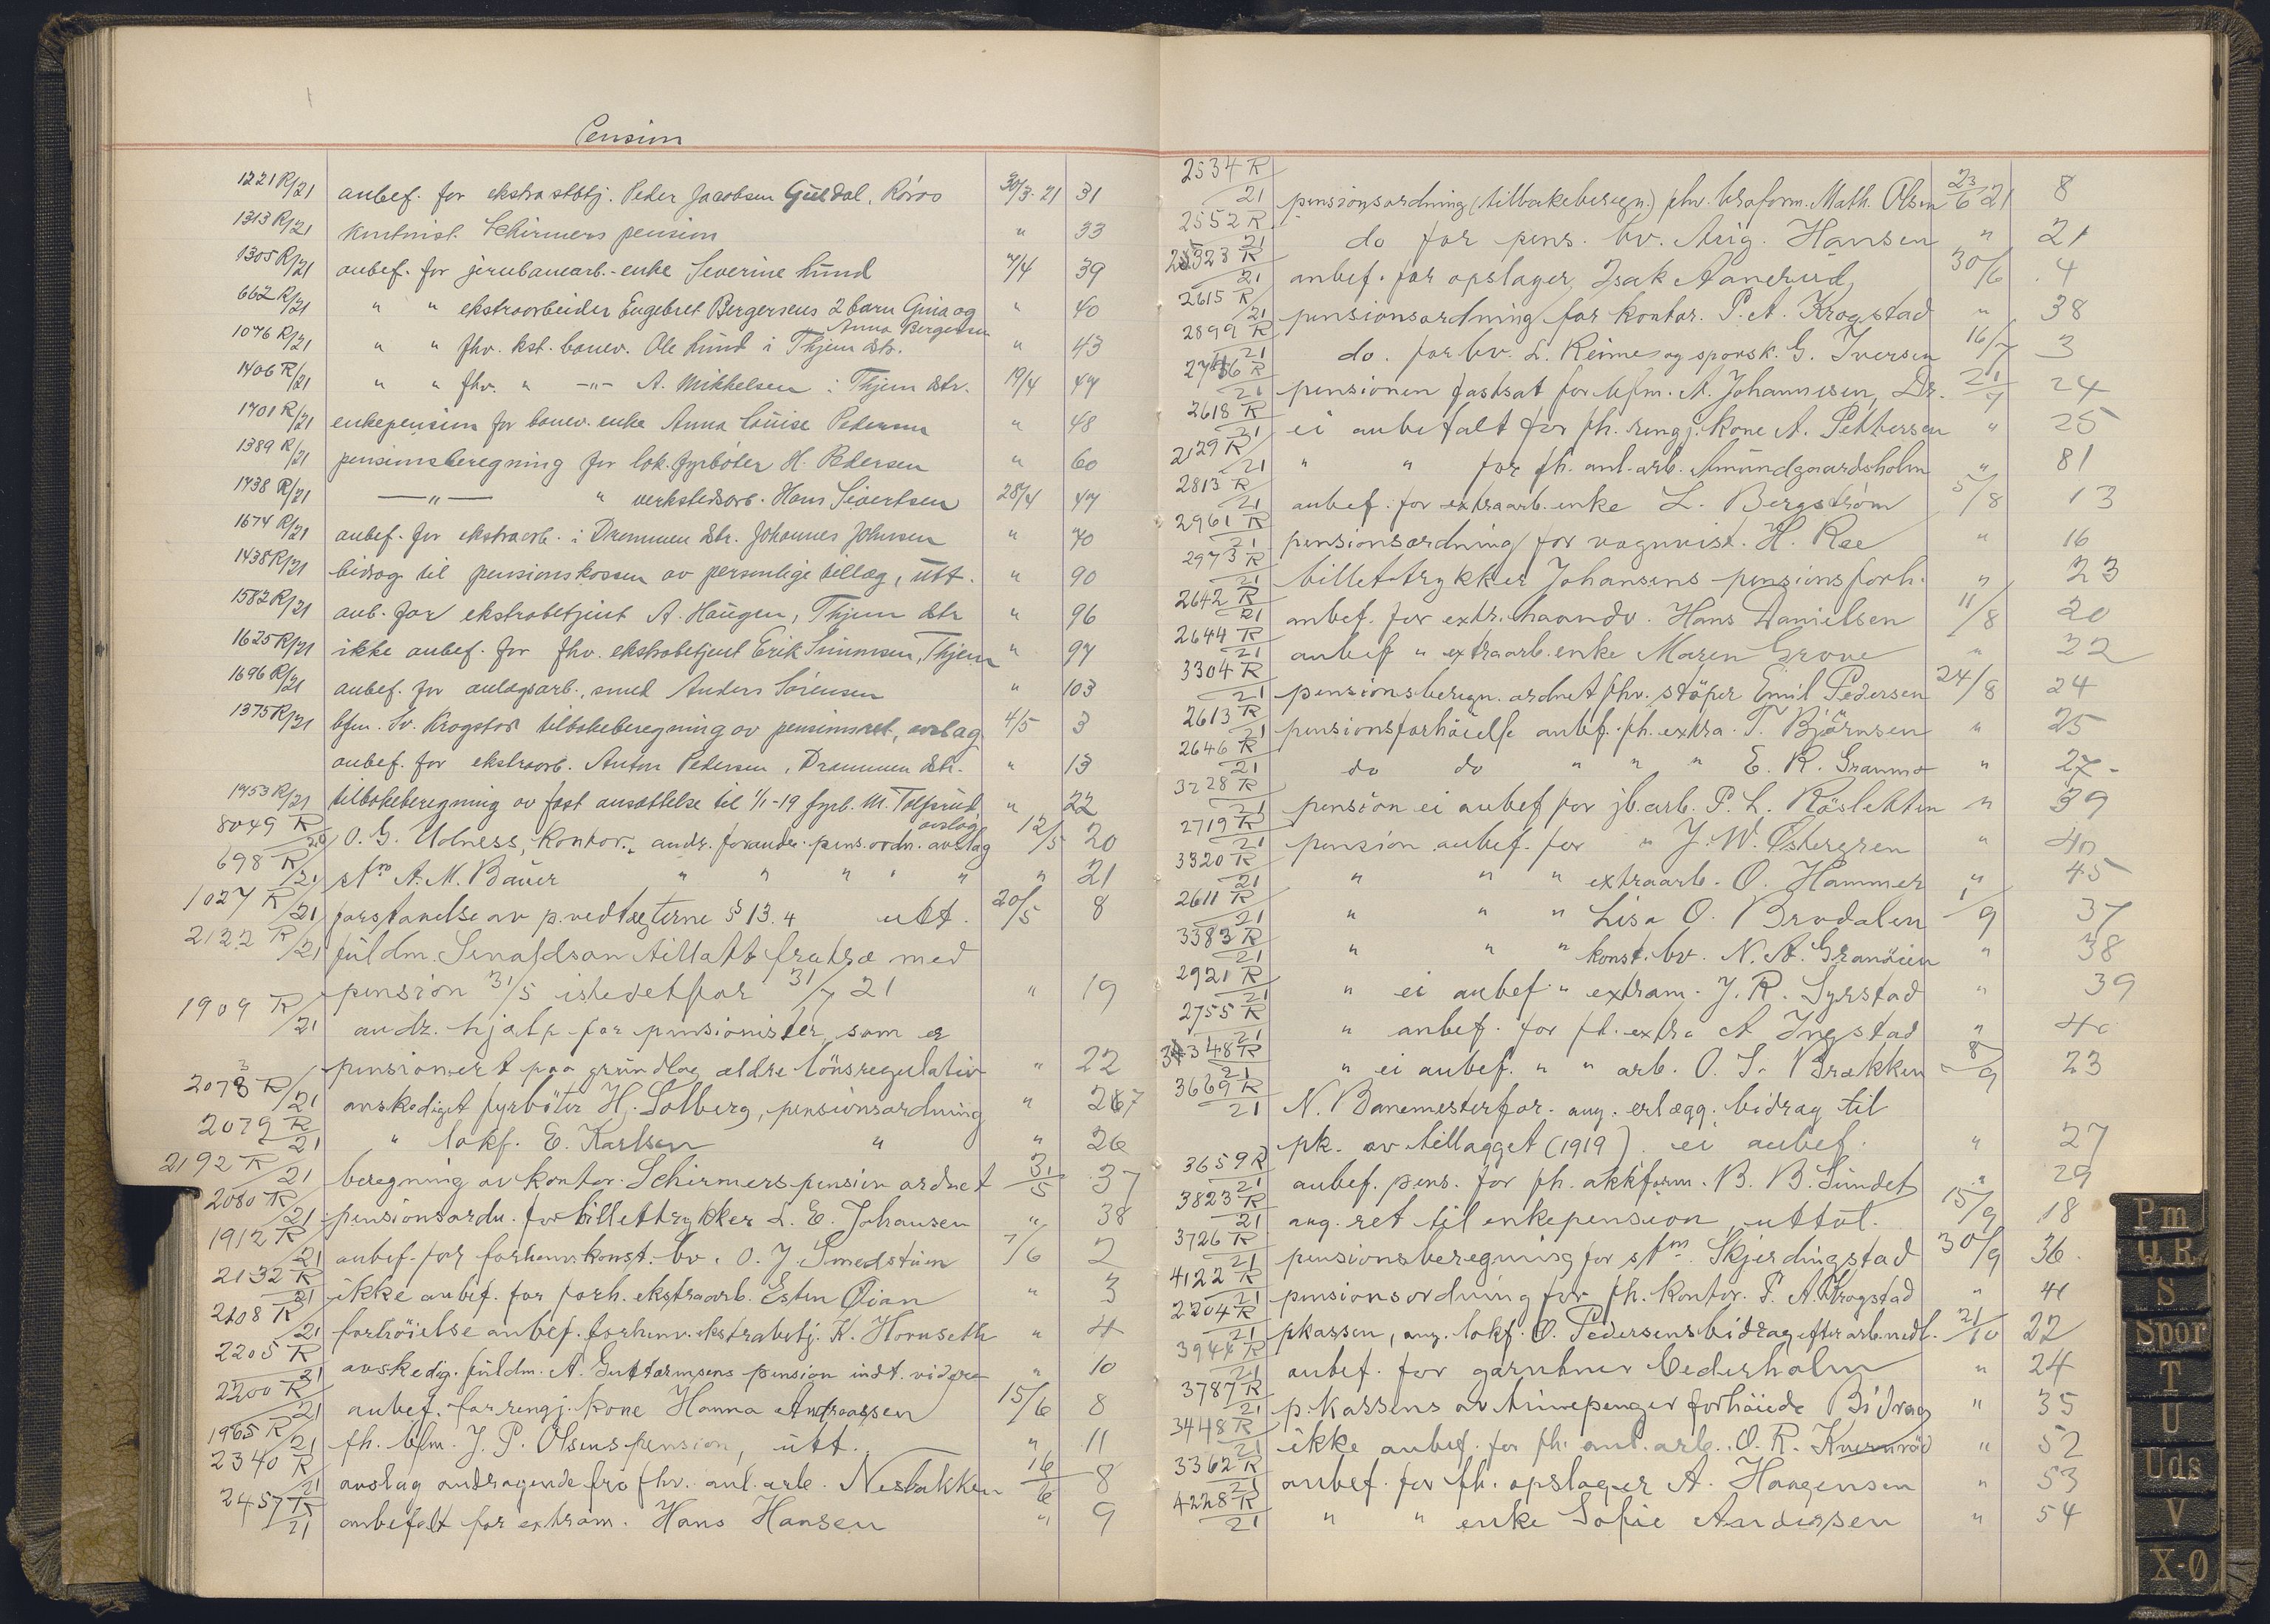 Pension
1221 R/21 anbef. for ekstrastbtj. Peder Jacobsen Guldal, Röros 30/3-21 31
1313 R/21 Kontorist. Schirmers pension " 33
1305 R/21 anbef. for jernbanearb.-enke Severine Lund 7/4 39
662 R/21 " " ekstraarbeider Engebret Bergersens 2 barn Gina og " 40
Anna Bergersen
1076 R/21 " " fhv. kst. banev. Ole Lund i Thjem dstr. " 43
1406 R/21 " " fhv. " -"- A. Mikkelsen i Thjem dstr. 19/4 47
1701 R/21 enkepension for banev. enke Anna Louise Pedersen " 48
1389 R/21 pensionsberegning for lok. fyrböter H. Pedersen " 60
1738 R/21 —"— " verkstedsarb. Hans Sivertsen 28/4 47
1674 R/21 anbef. for ekstraarb. i Drammen dstr. Johannes Johnsen " 70
1438 R/21 bidrag til pensionskassen av personlige tillæg, utt. " 90
1582 R/21 anb. for ekstrabetjent A. Haugen, Thjem dstr " 96
1625 R/21 ikke anbef. for fhv. ekstrabetjent Erik Simensen, Thjem " 97
1696 R/21 anbef. for anlægsarb., smed Anders Sörensen " 103
1375 R/21 bfm. Sv. Krogstad tilbakeberegning av pensionsret, avslag 4/5 3
anbef. for ekstraarb. Anton Pedersen, Drammen dstr. " 13
1753 R/21 tilbakeberegning av fast ansættelse til 1/1-19 fyrb. M. Tolfsrud " 22
avslag
8049 R/20 O. G. Udness, kontor., andr. forandr. pens. ordn. avslag 12/5 20
698 R/21 stm A. M. Bauer " " " " " " 21
1027 R/21 forstaaelse av p.vedtægterne § 13.4 utt. 20/5 8
2122 R/21 fuldm. tillatt fratræ med
pension 31/5 istedetfor 31/7 21 " 19
1909 R/21 andr. hjælp for pensionister, som er
pensionert paa grundlag ældre lönsregulativ " 22
2078 R/21 avskediget fyrböter H. Solberg, pensionsordning " 267
2079 R/21 " lokf. E. Karlsen " " 26
2192 R/21 beregning av kontor. Schirmers pension ordnet 31/5 37
2080 R/21 pensionsordn. for billettrykker L. E. Johansen " 38
1912 R/21 anbef. for forhenv. konst. bv. O. J. Smedstuen 7/6 2
2132 R/21 ikke anbef. for forh. ekstraarb. Esten Öian " 3
2108 R/21 forhöielse anbef. forhenv. ekstrabetj. K. Hornseth " 4
2205 R/21 avskedig. fuldm. A. Guttormsens pension indt. videre " 10
2200 R/21 anbef. for rengj. kone Hanna Andreassen 15/6 8
1965 R/21 fh. bfm. J. P. Olsens pension, utt. " 11
2340 R/21 avslag andragende fra fhv. anl. arb. Nesbakken 16/6 8
2457 R/21 anbefalt for extram. Hans Hansen " 9
2534 R/21 pensionsordning (tilbakeberegn.) fhv. broform. Math. Olsen 23/6 21 8
2552 R/21 do for pens. bv. Aug. Hansen " 21
2323 R/21 anbef. for opslager Isak Aanerud 30/6 4
2615 R/21 pensionsordning for kontor. P. A. Krogstad " 38
2899 R/21 do. for bv. L. Reime og sporsk. G. Iversen 16/7 3
2736 R/21 pensionen fastsat for bfm. A. Johannesen, Dr. 21/7 24
2618 R/21 ei anbefalt for fh. rengj. kone A. Pettersen " 25
2129 R/21 " " for fh. anl. arb. Amundgaardsholm " 81
2813 R/21 anbef. for extraarb. enke L. Bergström 5/8 13
2961 R/21 pensionsordning for vognvist. H. Ree " 16
2973 R/21 billettrykker Johansens pensionsforh. " 23
2642 R/21 anbef. for extr. haandv. Hans Danielsen 11/8 20
2644 R/21 anbef " extraarb. enke Maren Grove " 22
3304 R/21 pensionsberegn. ordnet fhv. stöper Emil Pedersen 24/8 24
2613 R/21 pensionsforhöielse anbef. fh. extra. T. Björnsen " 25
2646 R/21 do do " " " E. R. Granmo " 27-
3228 R/21 pension ei anbef for jb. arb. P. L. Rösletten " 39
2719 R/21 pension anbef. for " J. W. Östergren " 40
3320 R/21 " " " extraarb. O. Hammer " 45
2611 R/21 " " " Lisa O. Brodalen 1/9 37
3383 R/21 " " " konst. bv. N. A. Granöien " 38
2921 R/21 " ei anbef " extram. J. R. Syrstad " 39
2755 R/21 " anbef. for fh. extra A Ingstad " 40
3348 R/21 " ei anbef. " " arb. O. S. Brækken 8/9 23
3669 R/21 N. Banemesterfor. ang. erlægg. bidrag til
pk. av tillægget (1919) ei anbef. " 27
3659 R/21 anbef. pens. for fh. akkform. B. B. Sundet " 29
3823 R/21 ang. ret til enkepension, uttal. 15/9 18
3726 R/21 pensionsberegning for stm Skjerdingstad 30/9 36.
4122 R/21 pensionsordning for fh. kontor. P. A. Krogstad " 41
2204 R/21 pkassen, ang. lokf. O. Pedersens bidrag efter arb. nedl. 21/10 22
3944 R/21 anbef. for gartner Cederholm " 24
3787 R/21 p.kassens av timepenger forhöiede Bidrag " 35
3448 R/21 ikke anbef. for fh. anl. arb. O. R. Kvernröd " 52
3362 R/21 anbef. for fh. opslager A. Haagensen " 53
4228 R/21 " " enke Sofie Andersen " 54
Pm
Q R
S
Spor
T
U
Uds
V
X-Ø